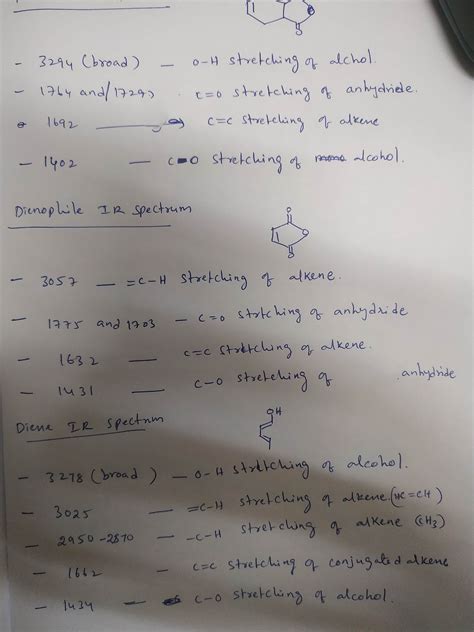 - 3294 (broad) — O-H stretching of alchol.
- 1764 and/1729> C=O stretching of anhydride.
1692 — C=C stretching of alkene
- 1402 — C-O stretching of alcohol.
Dienophile IR spectrum
O
O
O
- 3057 — =C-H stretching of alkene.
- 1775 and 1703 — C=O stretching of anhydride
- 1632 — C=C stretching of alkene.
- 1431 — C-O stretching of anhydride
Diene IR spectrum
OH
- 3278 (broad) — O-H stretching of alcohol.
- 3025 — =C-H stretching of alkene (HC=CH)
- 2950-2870 — -C-H stretching of alkene (CH3)
- 1662 — C=C stretching of conjugated alkene
- 1434 — C-O stretching of alcohol.